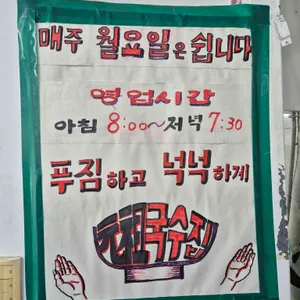 매주 월요일은 쉽니다
영업시간
아침 8:00~저녁 7:30
푸짐하고 넉넉하게
元祖국수집